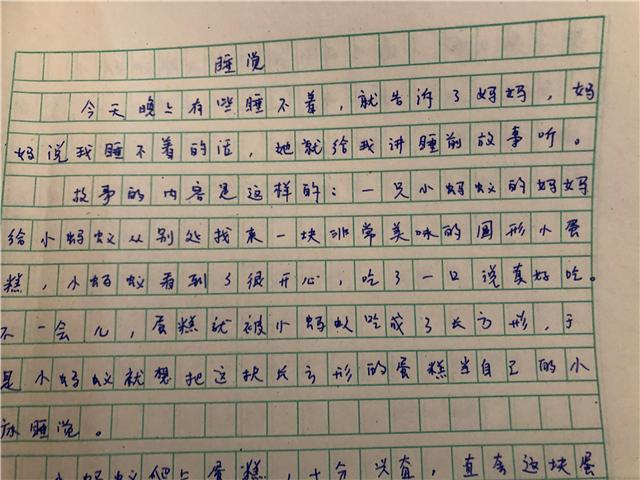 睡觉
今天晚上有些睡不着，就告诉了妈妈，妈
妈说我睡不着的话，她就给我讲睡前故事听。
故事的内容是这样的：一只小蚂蚁的妈妈
给小蚂蚁从别处找来一块非常美味的圆形小蛋
糕，小蚂蚁看到了很开心，吃了一口说真好吃。
不一会儿，蛋糕就被小蚂蚁吃成了长方形，于
是小蚂蚁就想把这块长方形的蛋糕当自己的小
床睡觉。
小蚂蚁爬上蛋糕，十分兴奋，直夸这块蛋